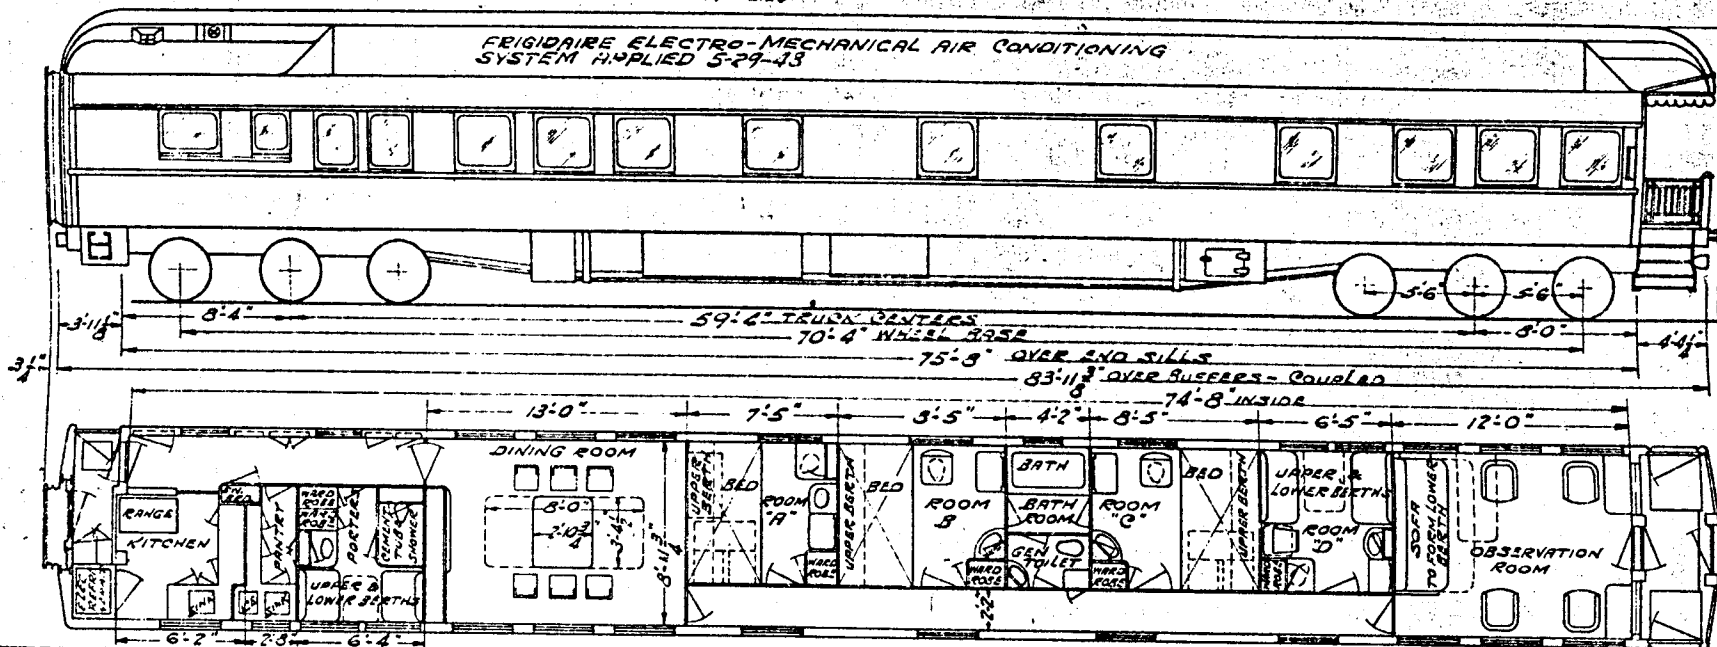 FRIGIDAIRE ELECTRO-MECHANICAL AIR CONDITIONING
SYSTEM APPLIED 5-29-43
5'-6" 5'-6"
3'-11 1/8" 8'-4" 59'-6" TRUCK CENTERS 8'-0" 4'-4 1/4"
70'-4" WHEEL BASE
75'-8" OVER END SILLS
3 1/4" 83'-11 3/8" OVER BUFFERS - COUPLED
74'-8" INSIDE
13'-0" 7'-5" 8'-5" 4'-2" 8'-5" 6'-5" 12'-0"
DINING ROOM
RANGE
KITCHEN
PANTRY
WARD
ROBE
WARD
ROBE
PORTERS
CEMENT
TUB
SHOWER
UPPER &
LOWER BERTHS
SINK
ICE
SINK
8'-0"
2'-10 3/4"
3'-4 1/2"
8'-11 3/4"
UPPER
BERTH
BED
ROOM
"A"
WARD
ROBE
UPPER BERTH
BED
ROOM
B
WARD
ROBE
BATH
BATH
ROOM
GEN
TOILET
ROOM
"C"
WARD
ROBE
BED
UPPER BERTH
UPPER &
LOWER BERTHS
ROOM
"D"
WARD
ROBE
SOFA
TO FORM LOWER
BERTH
OBSERVATION
ROOM
2'-2"
6'-2" 2'-8" 6'-4"